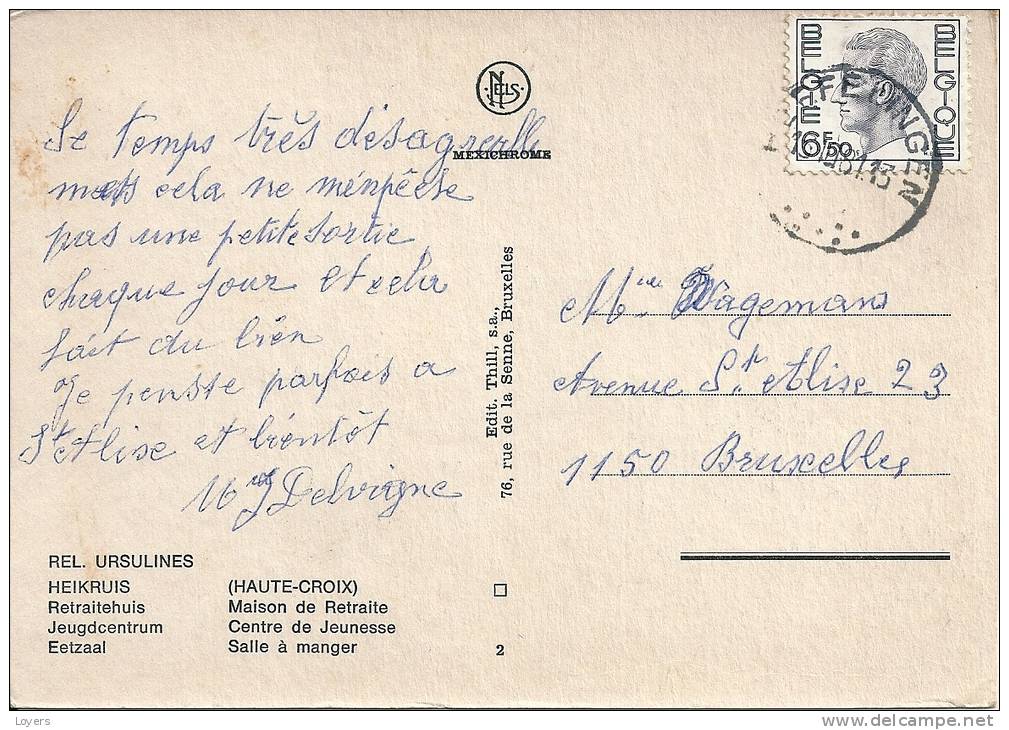 Le temps très désagréable
mais cela ne m'enpêese
pas une petite sortie
chaque jour et cela
fait du bien
Je penste parfois a
St Alise et bientôt
J Delvigne
NELS
MEXICHROME
Edit. Thill, s.a.,
76, rue de la Senne, Bruxelles
BELGIË
BELGIQUE
6F50
PEPINGEN
Mme Wagemans
Avenue St Alise 23
1150 Bruxelles
REL. URSULINES
HEIKRUIS (HAUTE-CROIX)
Retraitehuis Maison de Retraite
Jeugdcentrum Centre de Jeunesse
Eetzaal Salle à manger
2
Loyers
delcampe.net